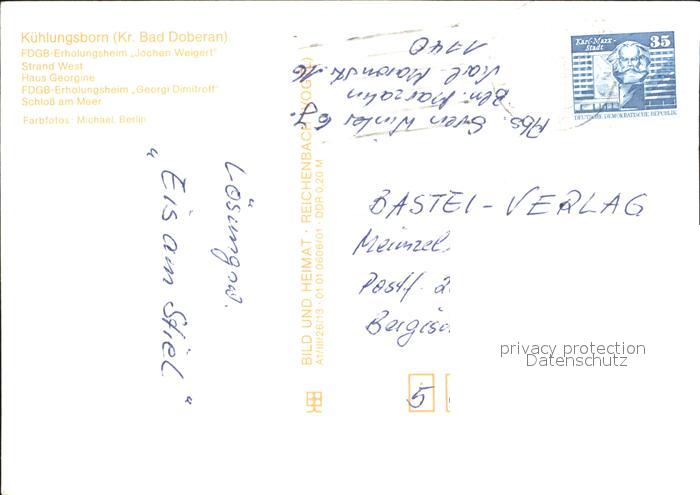 Kühlungsborn (Kr. Bad Doberan)
FDGB-Erholungsheim „Jochen Weigert"
Strand West
Haus Georgine
FDGB-Erholungsheim „Georgi Dimitroff"
Schloß am Meer
Farbfotos: Michael, Berlin
Lösungsw.
„Eis am Stiel"
BILD UND HEIMAT · REICHENBACH (VOGTL)
A1/III/26/13 · 01 01 0606/01 · DDR 0,20 M
Abs. Sven Winter
Bln. Marzahn
1140
Karl-Marx-
Stadt
35
DEUTSCHE DEMOKRATISCHE REPUBLIK
BASTEI-VERLAG
Postf. 2
5
privacy protection
Datenschutz